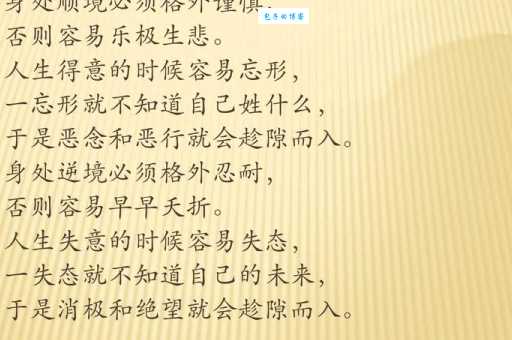 身处顺境必须格外谨慎，
否则容易乐极生悲。
人生得意的时候容易忘形，
一忘形就不知道自己姓什么，
于是恶念和恶行就会趁隙而入。
身处逆境必须格外忍耐，
否则容易早早夭折。
人生失意的时候容易失态，
一失态就不知道自己的未来，
于是消极和绝望就会趁隙而入。